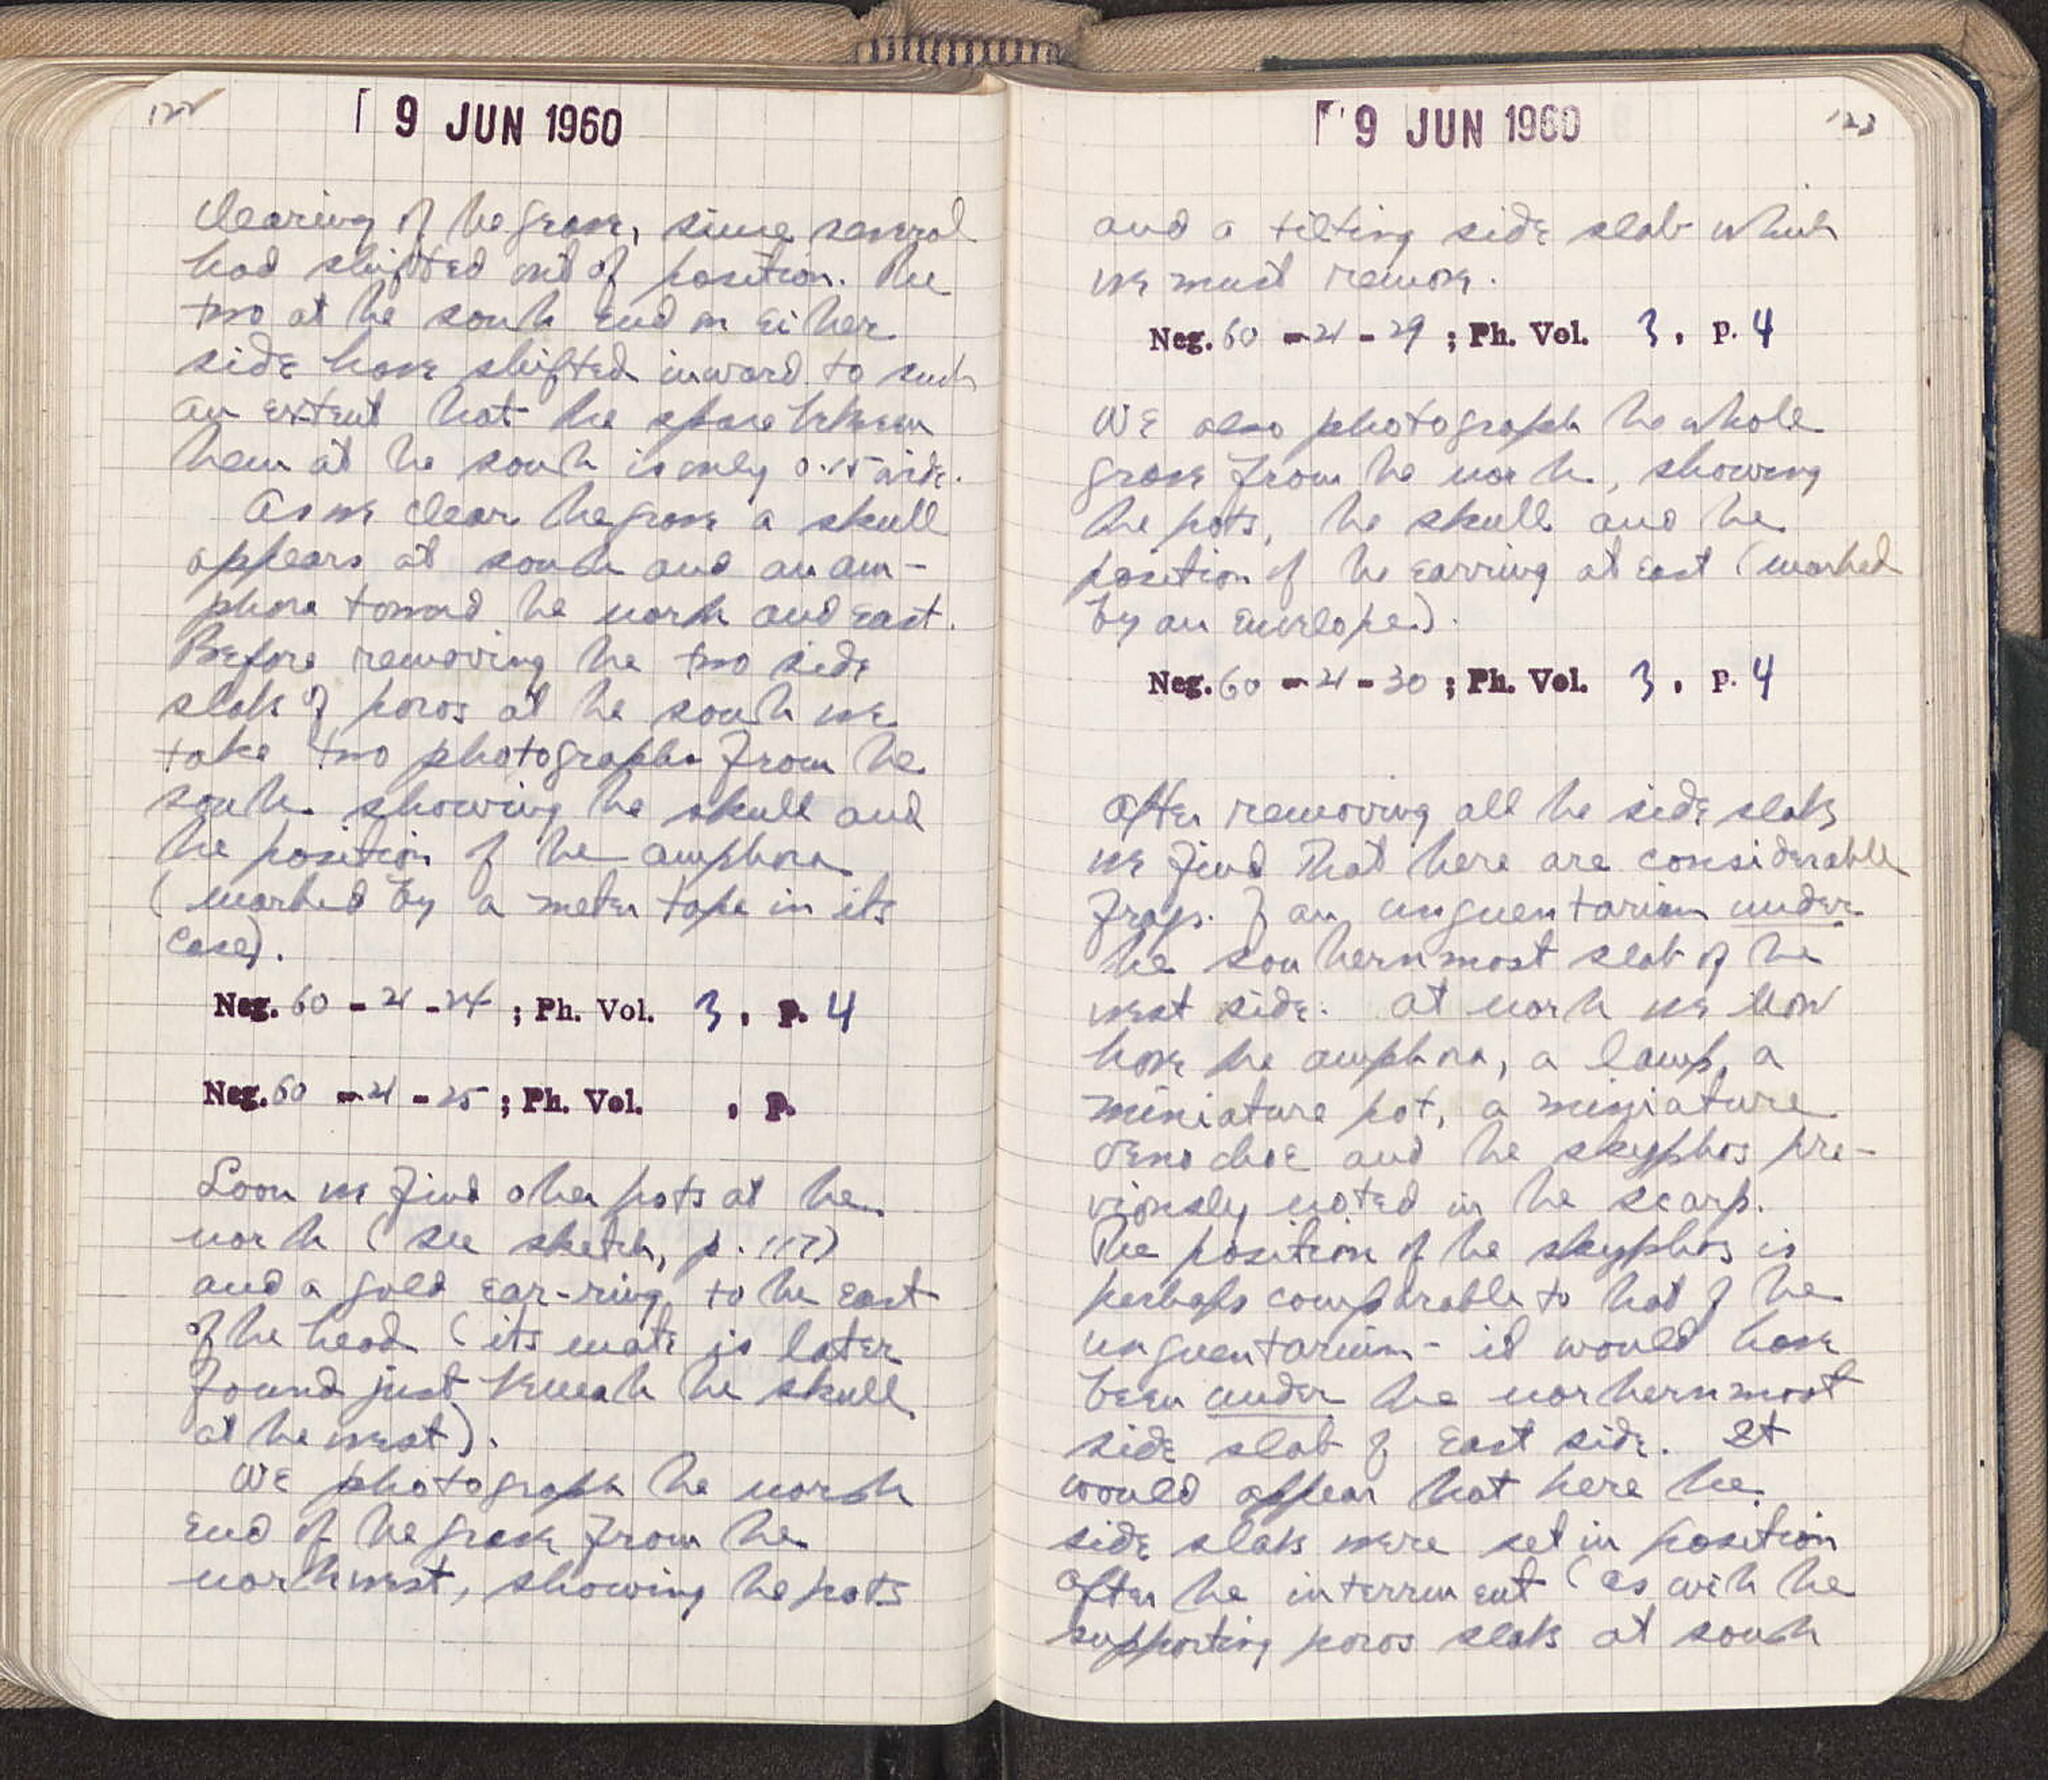 122
9 JUN 1960
clearing of the grave, since several
had shifted out of position. The
two at the south end on either
side have shifted inward to such
an extent that the space between
them at the south is only 0.15 wide.
As we clear the grave a skull
appears at south and an am-
phora toward the north and east.
Before removing the two side
slabs of poros at the south we
take two photographs from the
south showing the skull and
the position of the amphora
(marked by a meter tape in its
case).
Neg. 60 - 21 - 24 ; Ph. Vol. 3 , p. 4
Neg. 60 - 21 - 25 ; Ph. Vol. , p.
Soon we find other pots at the
north (see sketch, p. 117)
and a gold ear-ring to the east
of the head (its mate is later
found just beneath the skull
at the west).
We photograph the north
end of the grave from the
northwest, showing the pots
9 JUN 1960
123
and a tilting side slab which
we must remove.
Neg. 60 - 21 - 29 ; Ph. Vol. 3 , p. 4
We also photograph the whole
grave from the north, showing
the pots, the skull and the
position of the earring at east (marked
by an envelope).
Neg. 60 - 21 - 30 ; Ph. Vol. 3 , p. 4
After removing all the side slabs
we find that there are considerable
frags. of an unguentarium under
the southernmost slab of the
west side. At north we now
have the amphora, a lamp, a
miniature pot, a miniature
oenochoe and the skyphos pre-
viously noted in the scarp.
The position of the skyphos is
perhaps comparable to that of the
unguentarium - it would have
been under the northernmost
side slab of east side. It
would appear that here the
side slabs were set in position
after the interment (as with the
supporting poros slabs at south